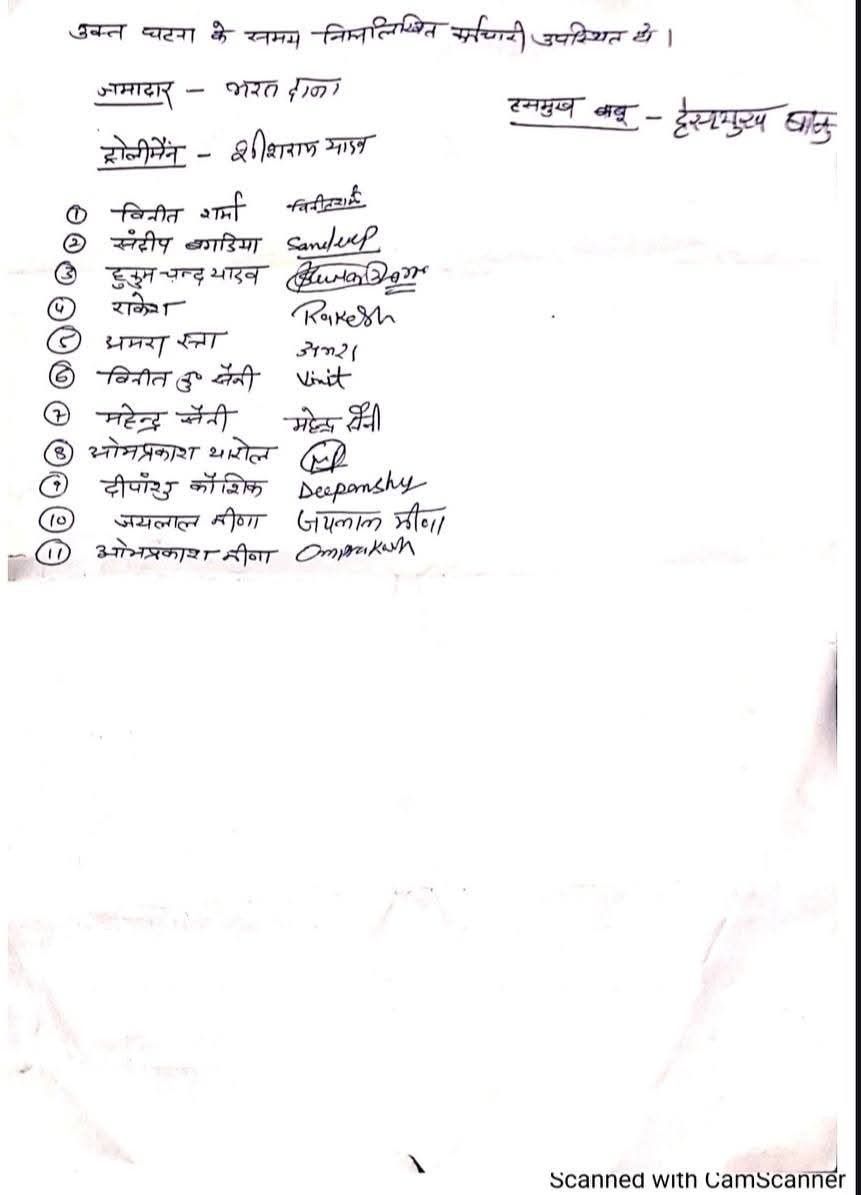 उक्त घटना के समय निम्नलिखित कर्मचारी उपस्थित थे।
जमादार - भरत दाना
हसमुख बाबू - हसमुख बाबु
ट्रोलीमैन - शीशराम यादव
① विनीत शर्मा विनीत शर्मा
② संदीप बगडिया Sandeep
③ हुकुम चन्द यादव
④ राकेश Rakesh
⑤ अमरा रत्ना अमरा
⑥ विनीत कु सैनी Vinit
⑦ महेन्द्र सैनी महेन्द्र सैनी
⑧ ओमप्रकाश थारोल
⑨ दीपांशु कौशिक Deepanshy
⑩ जयलाल मीणा जयलाल मीणा
⑪ ओमप्रकाश मीणा Omprakash
Scanned with CamScanner